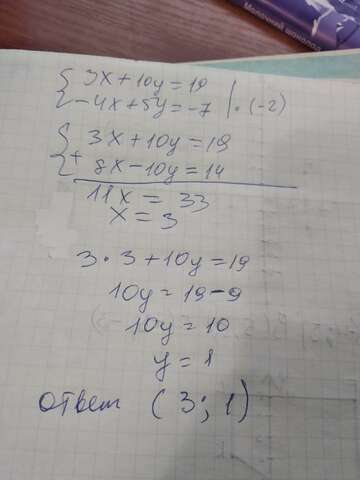 Молочный шоколад
{ 3x+10y=19
-4x+5y=-7 | · (-2)
{ 3x+10y=19
+ 8x-10y=14
11x = 33
x = 3
3 · 3+10y=19
10y=19-9
10y=10
y=1
ответ (3; 1)